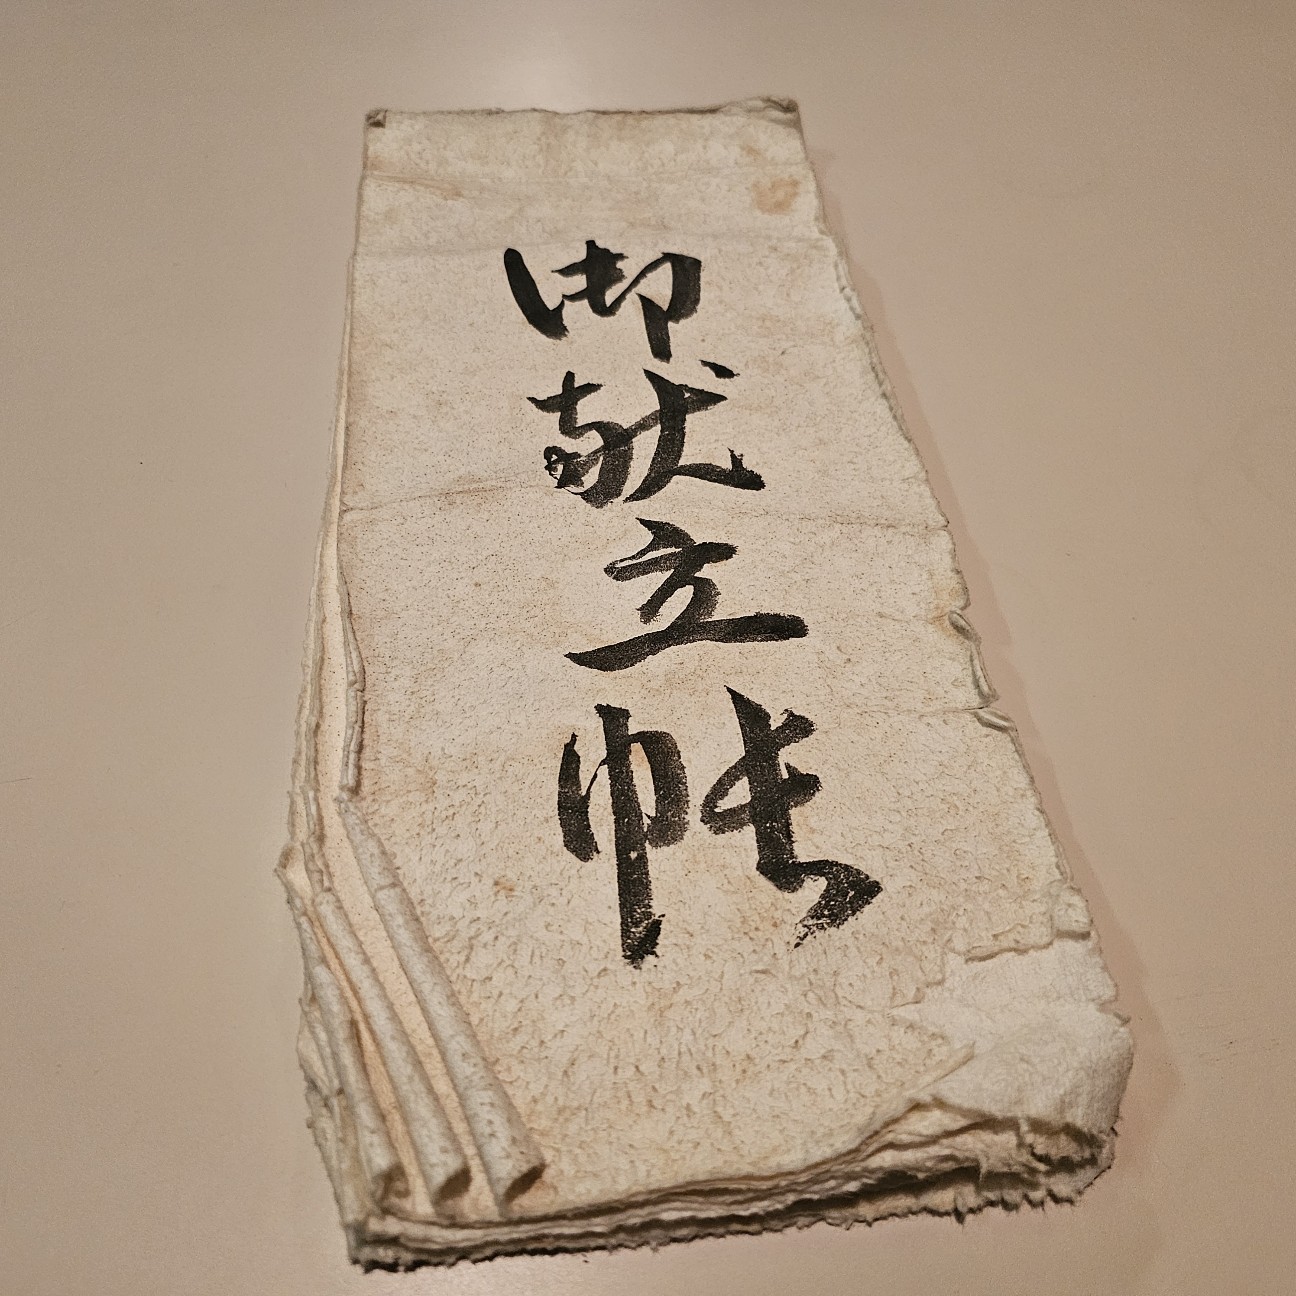 御献立帳